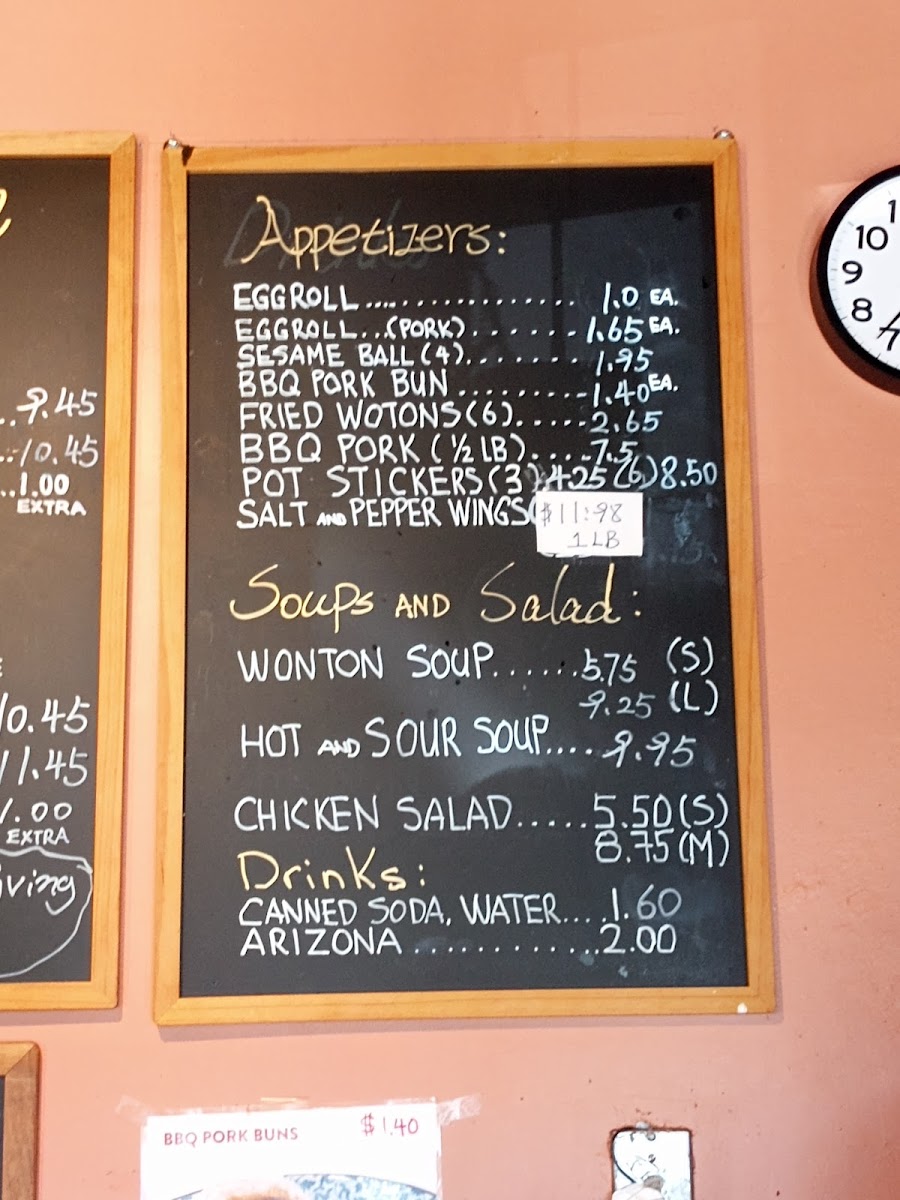 9.45
10.45
1.00
EXTRA
10.45
11.45
1.00
EXTRA
Appetizers:
EGGROLL.................. 1.0 EA.
EGGROLL...(PORK).......1.65 EA.
SESAME BALL (4)........ 1.95
BBQ PORK BUN.........1.40 EA.
FRIED WOTONS(6).....2.65
BBQ PORK (½ LB)....7.5
POT STICKERS(3) 4.25 (6) 8.50
SALT AND PEPPER WINGS
$11.98
1 LB
Soups AND Salad:
WONTON SOUP......5.75 (S)
9.25 (L)
HOT AND SOUR SOUP....9.95
CHICKEN SALAD.....5.50(S)
8.75(M)
Drinks:
CANNED SODA, WATER...1.60
ARIZONA.............2.00
10
9
8
BBQ PORK BUNS $1.40